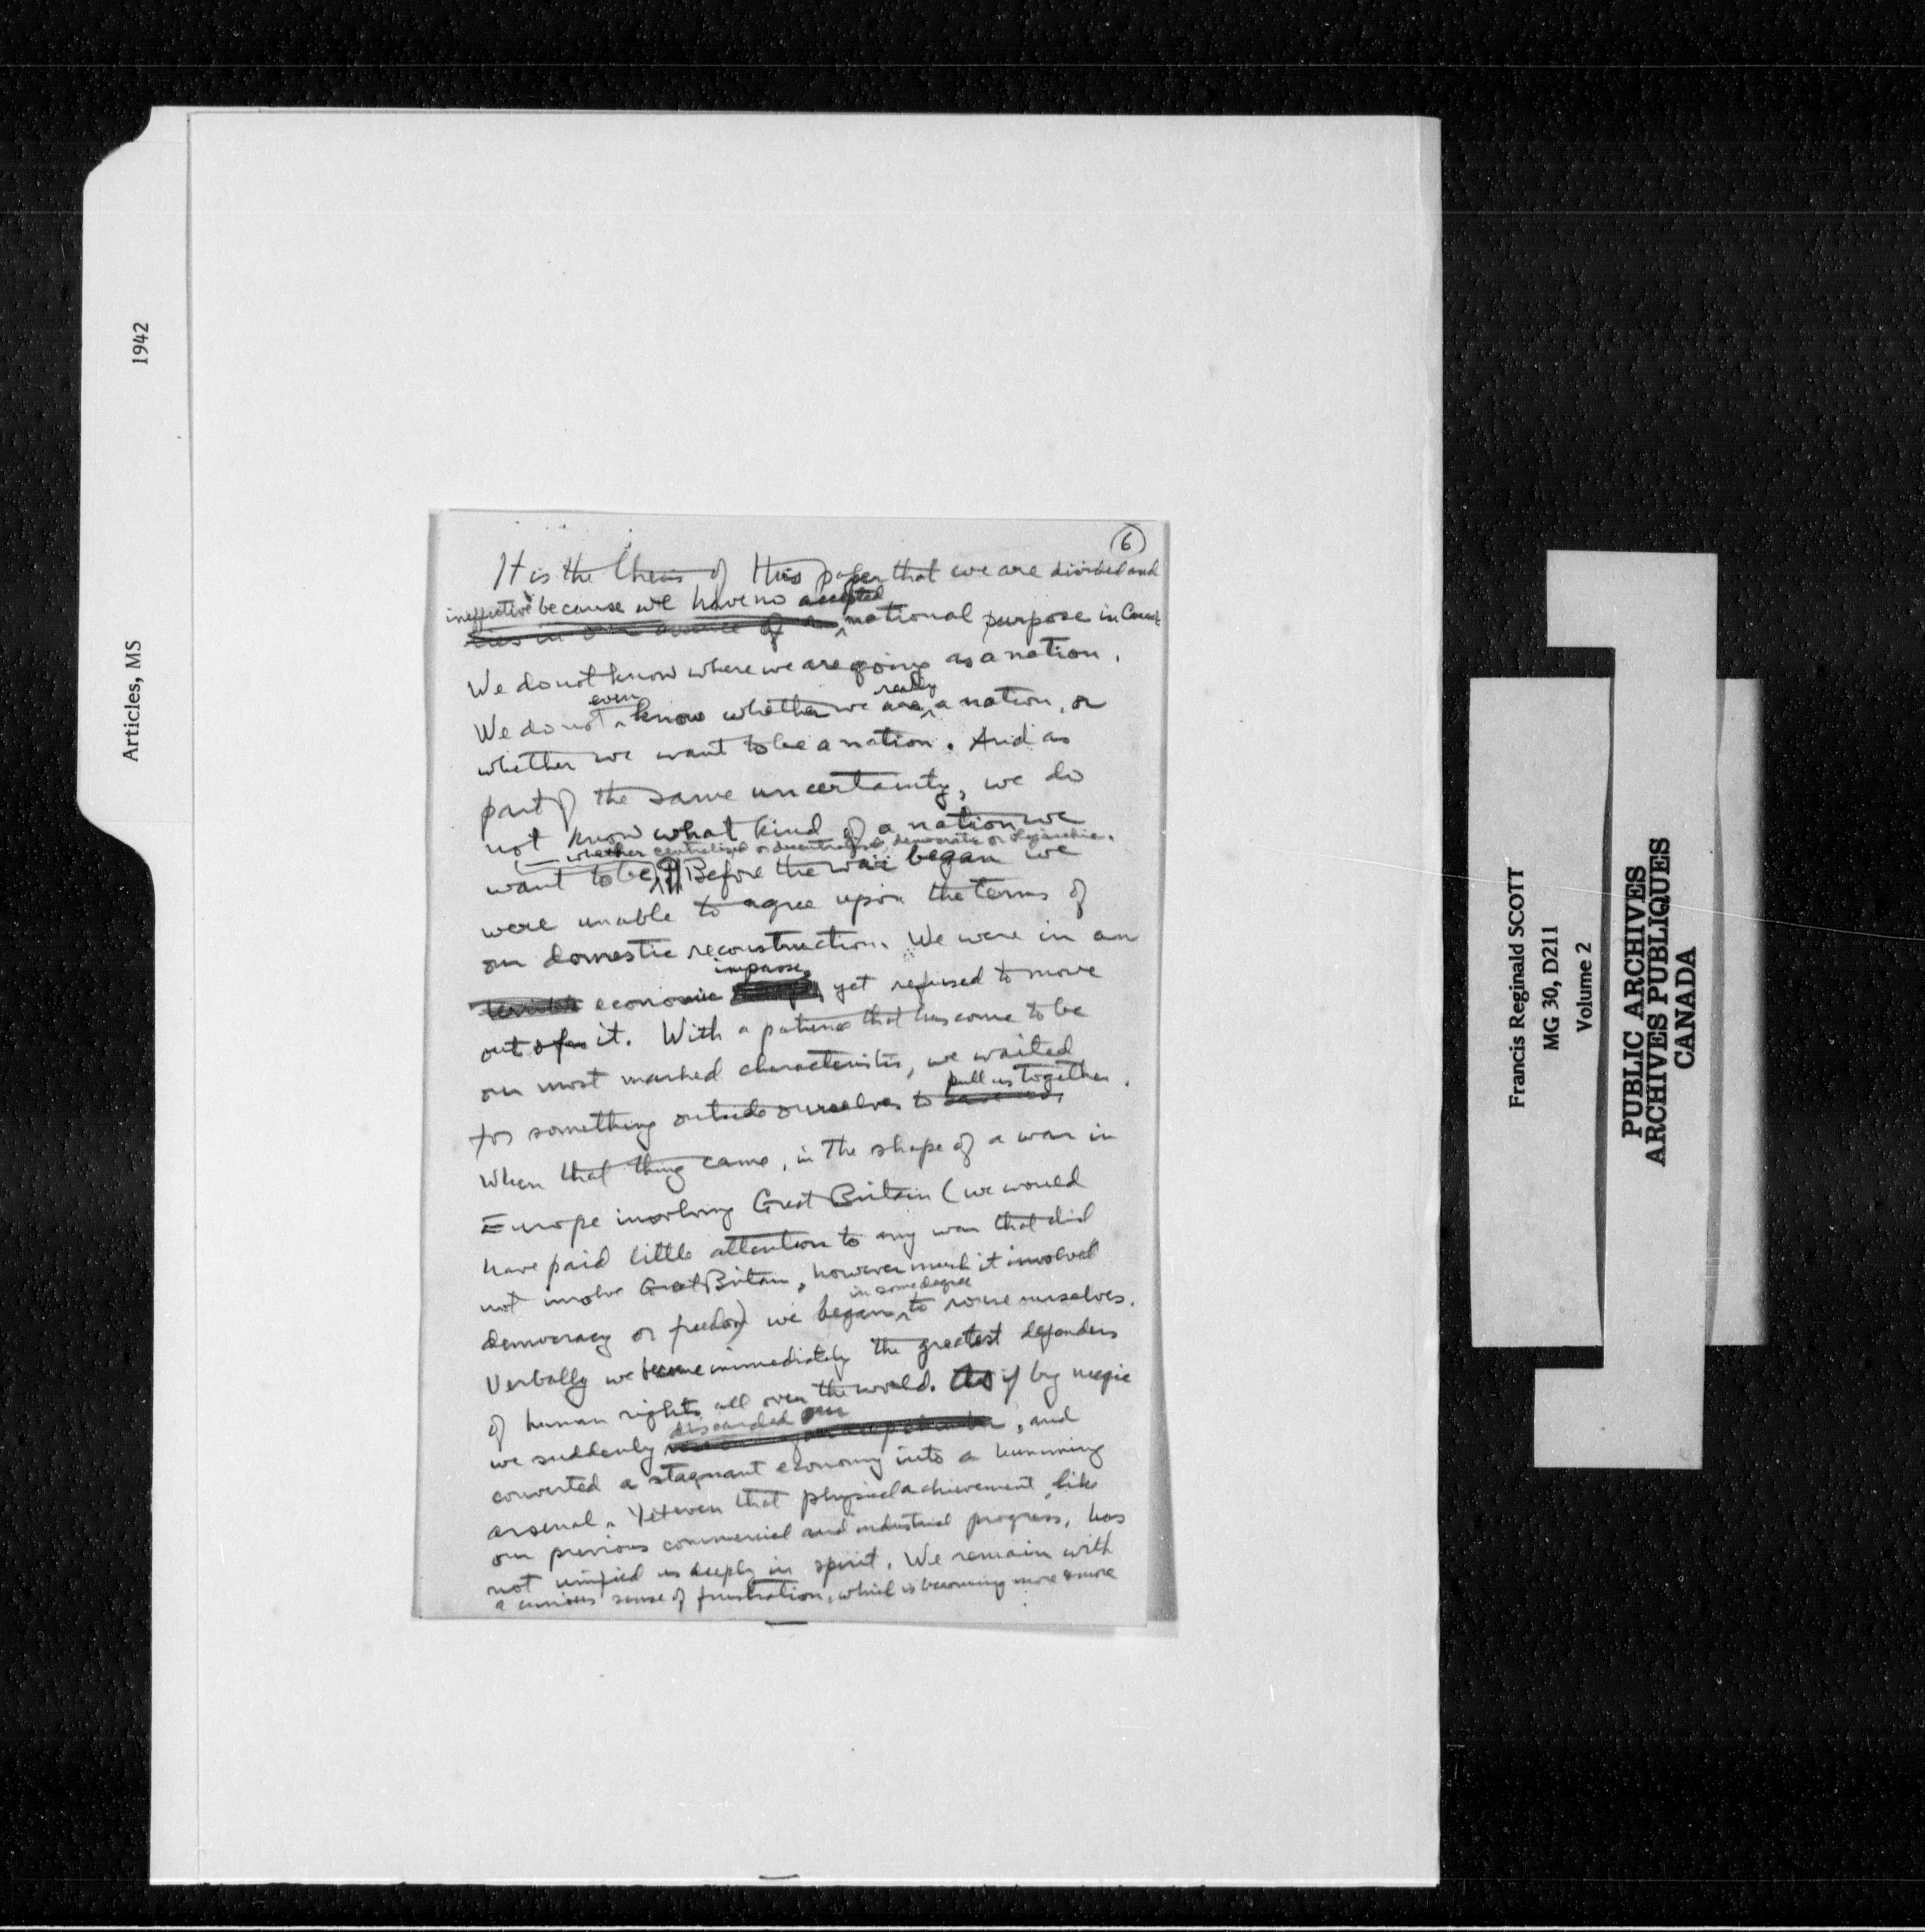 1942
Articles, MS
6
It is the thesis of this paper that we are divided and
ineffective because we have no accepted
lies in our absence of a national purpose in
We do not know where we are going as a nation.
even really
We do not know whether we are a nation, or
whether we want to be a nation. And as
part of the same uncertainty, we do
not know what kind of a nation we
whether centralized or decentralized, democratic or oligarchic.
want to be, Before the war began we
were unable to agree upon the terms of
our domestic reconstruction. We were in an
impasse,
economic yet refused to move
out of it. With a patience that has come to be
our most marked characteristic, we waited
pull us together.
for something outside ourselves to save us.
When that thing came, in the shape of a war in
Europe involving Great Britain (we would
have paid little attention to any war that did
not involve Great Britain, however much it involved
in some degree
democracy or freedom) we began to rouse ourselves.
Verbally we became immediately the greatest defenders
of human rights all over the world. As if by magic
discarded our
we suddenly , and
converted a stagnant economy into a humming
arsenal. Yet even that physical achievement, like
our previous commercial and industrial progress, has
not unified us deeply in spirit. We remain with
a curious sense of frustration, which is becoming more & more
Francis Reginald SCOTT
MG 30, D211
Volume 2
PUBLIC ARCHIVES
ARCHIVES PUBLIQUES
CANADA